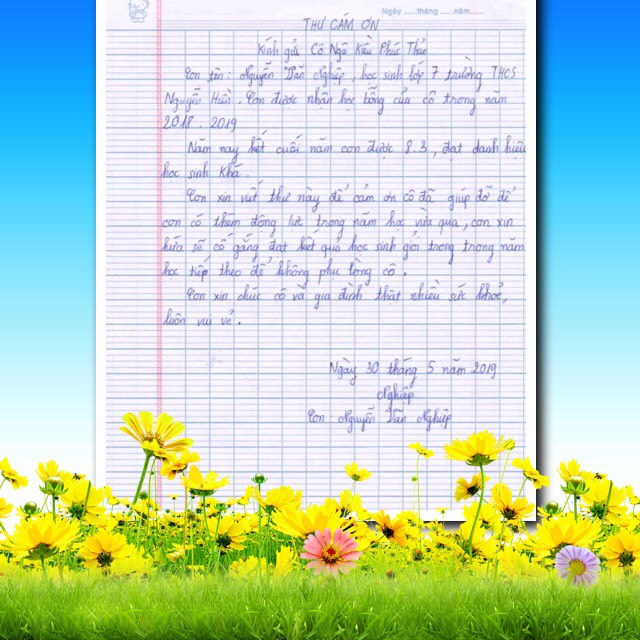 Ngày ......tháng ......năm......
THƯ CẢM ƠN
Kính gửi Cô Ngô Kiều Phúc Thảo
Con tên : Nguyễn Văn Nghiệp , học sinh lớp 7 trường THCS
Nguyễn Hiền . Con được nhận học bổng của cô trong năm
2018 . 2019
Năm nay kết cuối năm con được 8.3 , đạt danh hiệu
học sinh Khá .
Con xin viết thư này để cảm ơn cô đã giúp đỡ để
con có thêm động lực trong năm học vừa qua , con xin
hứa sẽ cố gắng đạt kết quả học sinh giỏi trong trong năm
học tiếp theo để không phụ lòng cô .
Con xin chúc cô và gia đình thật nhiều sức khoẻ,
luôn vui vẻ .
Ngày 30 tháng 5 năm 2019
Nghiệp
Con : Nguyễn Văn Nghiệp